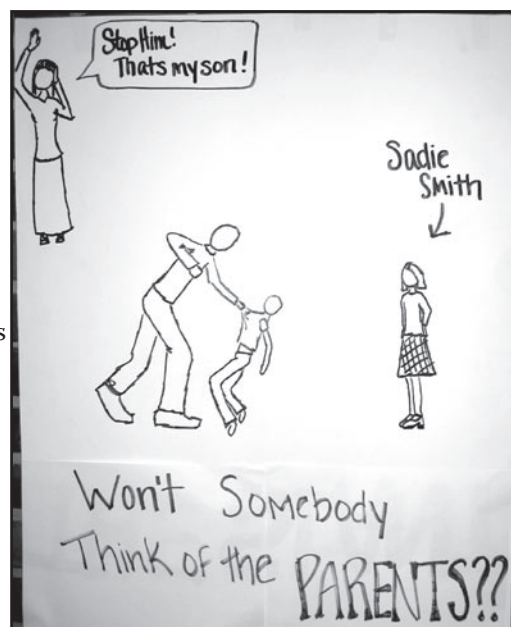 Stop Him!
Thats my son!
Sadie
Smith
s
Won't Somebody
Think of the PARENTS??